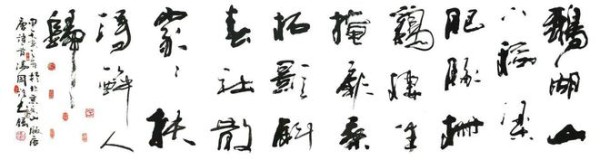 鵝湖山
下稻粱
肥豚柵
鷄棲半
掩扉桑
柘影斜
春社散
家家扶
得醉人
歸